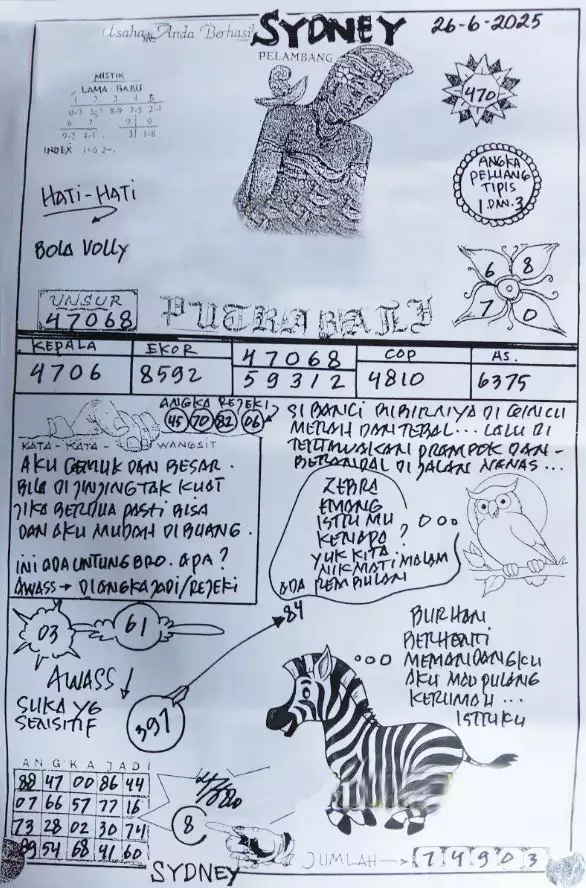 Usaha Anda Berhasil
SYDNEY
26-6-2025
PELAMBANG
MISTIK
LAMA BARU
INDEX
470
HATI-HATI
ANGKA
PELUANG
TIPIS
1 DAN 3
BOLA VOLLY
6 8
7 0
UNSUR
47068
PUTRA BALI
KEPALA
4706
EKOR
8592
47068
59312
COP
4810
AS.
6375
ANGKA REJEKI
45 70 82 06
KATA - KATA - WANGSIT
AKU GEMUK DAN BESAR.
BILA DI JINJING TAK KUAT
JIKA BERDUA PASTI BISA
DAN AKU MUDAH DI BUANG.
INI ADA UNTUNG BRO. APA?
AWASS → DI ANGKA JADI/REJEKI
SI BANCI BIBIRNIYA DI GINCU
MERAH DAN TEBAL... LALU DI
TERTAWAKAN
BERSANDAL DI JALAN NANAS...
ZEBRA
EMANG
ISTRI MU
KENAPA?
YUK KITA..
NIKMATI MALAM
ADA REMBULAN
84
03
61
AWASS
SUKA YG
SENSITIF
397
BURHAN
BERHENTI
MEMANDANGKU
AKU MAU PULANG
KERUMAH...
ISTRIKU
ANGKA JADI
88 47 00 86 44
07 66 57 77 16
73 28 02 30 74
89 54 68 41 60
8
SYDNEY
JUMLAH → 74903